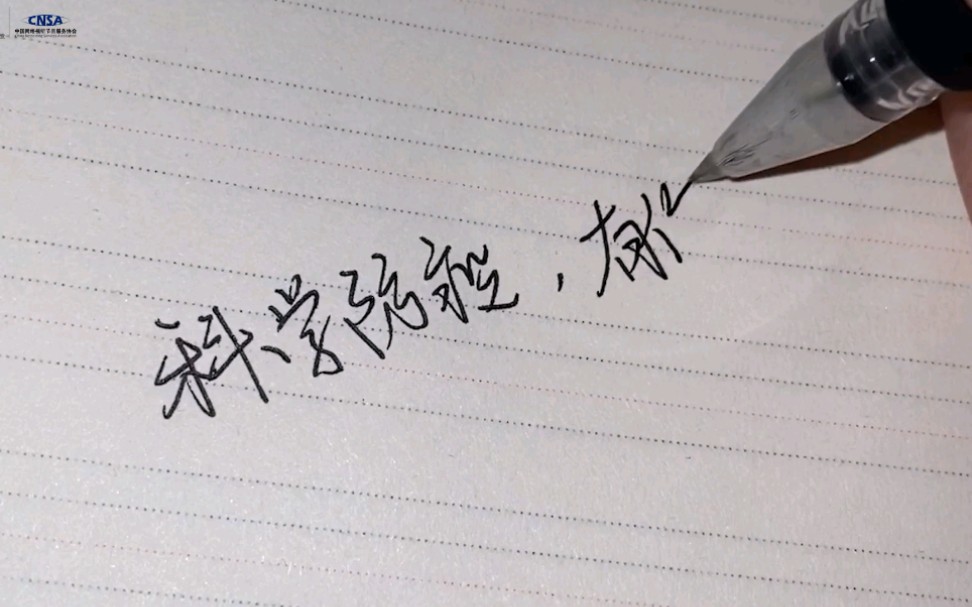 CNSA
中国网络视听节目服务协会
科学防控，有